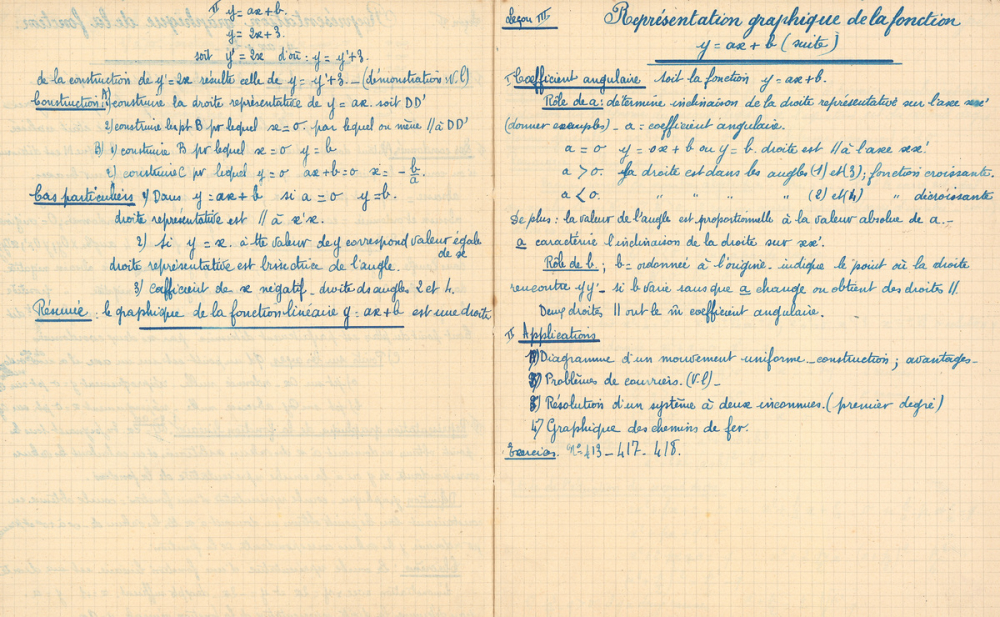 II y = ax + b.
y = 2x + 3.
soit y' = 2x d'où : y = y' + 3.
de la construction de y' = 2x résulte celle de y = y' + 3. _ (démonstration V.l)
Construction : A) 1) construire la droite représentative de y = ax. soit DD'
2) construire le pt B pr lequel x = 0. par lequel on mène // à DD'
B) 1) construire B pr lequel x = 0 y = b.
2) construire C pr lequel y = 0 ax + b = 0 x = - b/a.
Cas particuliers 1) Dans y = ax + b si a = 0 y = b.
droite représentative est // à x'x.
2) Si y = x. à tte valeur de y correspond valeur égale
de x
droite représentative est bissectrice de l'angle.
3) Coefficient de x négatif _ droite ds angles 2 et 4.
Résumé : le graphique de la fonction linéaire y = ax + b est une droite
Leçon III
Représentation graphique de la fonction
y = ax + b (suite)
I Coefficient angulaire soit la fonction y = ax + b.
Rôle de a : détermine inclinaison de la droite représentative sur l'axe xx'
(donner exemples) _ a = coefficient angulaire.
a = 0 y = 0x + b ou y = b. droite est // à l'axe xx'
a > 0. la droite est dans les angles (1) et (3) ; fonction croissante.
a < 0. " " " " (2) et (4) " décroissante
De plus : la valeur de l'angle est proportionnelle à la valeur absolue de a. _
a caractérise l'inclinaison de la droite sur xx'.
Rôle de b ; b = ordonnée à l'origine. indique le point où la droite
rencontre yy' _ si b varie sans que a change on obtient des droites //.
Deux droites // ont le m̂ coefficient angulaire.
II Applications
1) Diagramme d'un mouvement uniforme _ construction ; avantages _
2) Problèmes de courriers. (V.l) _
3) Résolution d'un système à deux inconnues. (premier degré)
4) Graphique des chemins de fer.
Exercices. Nos 413 _ 417 _ 418.